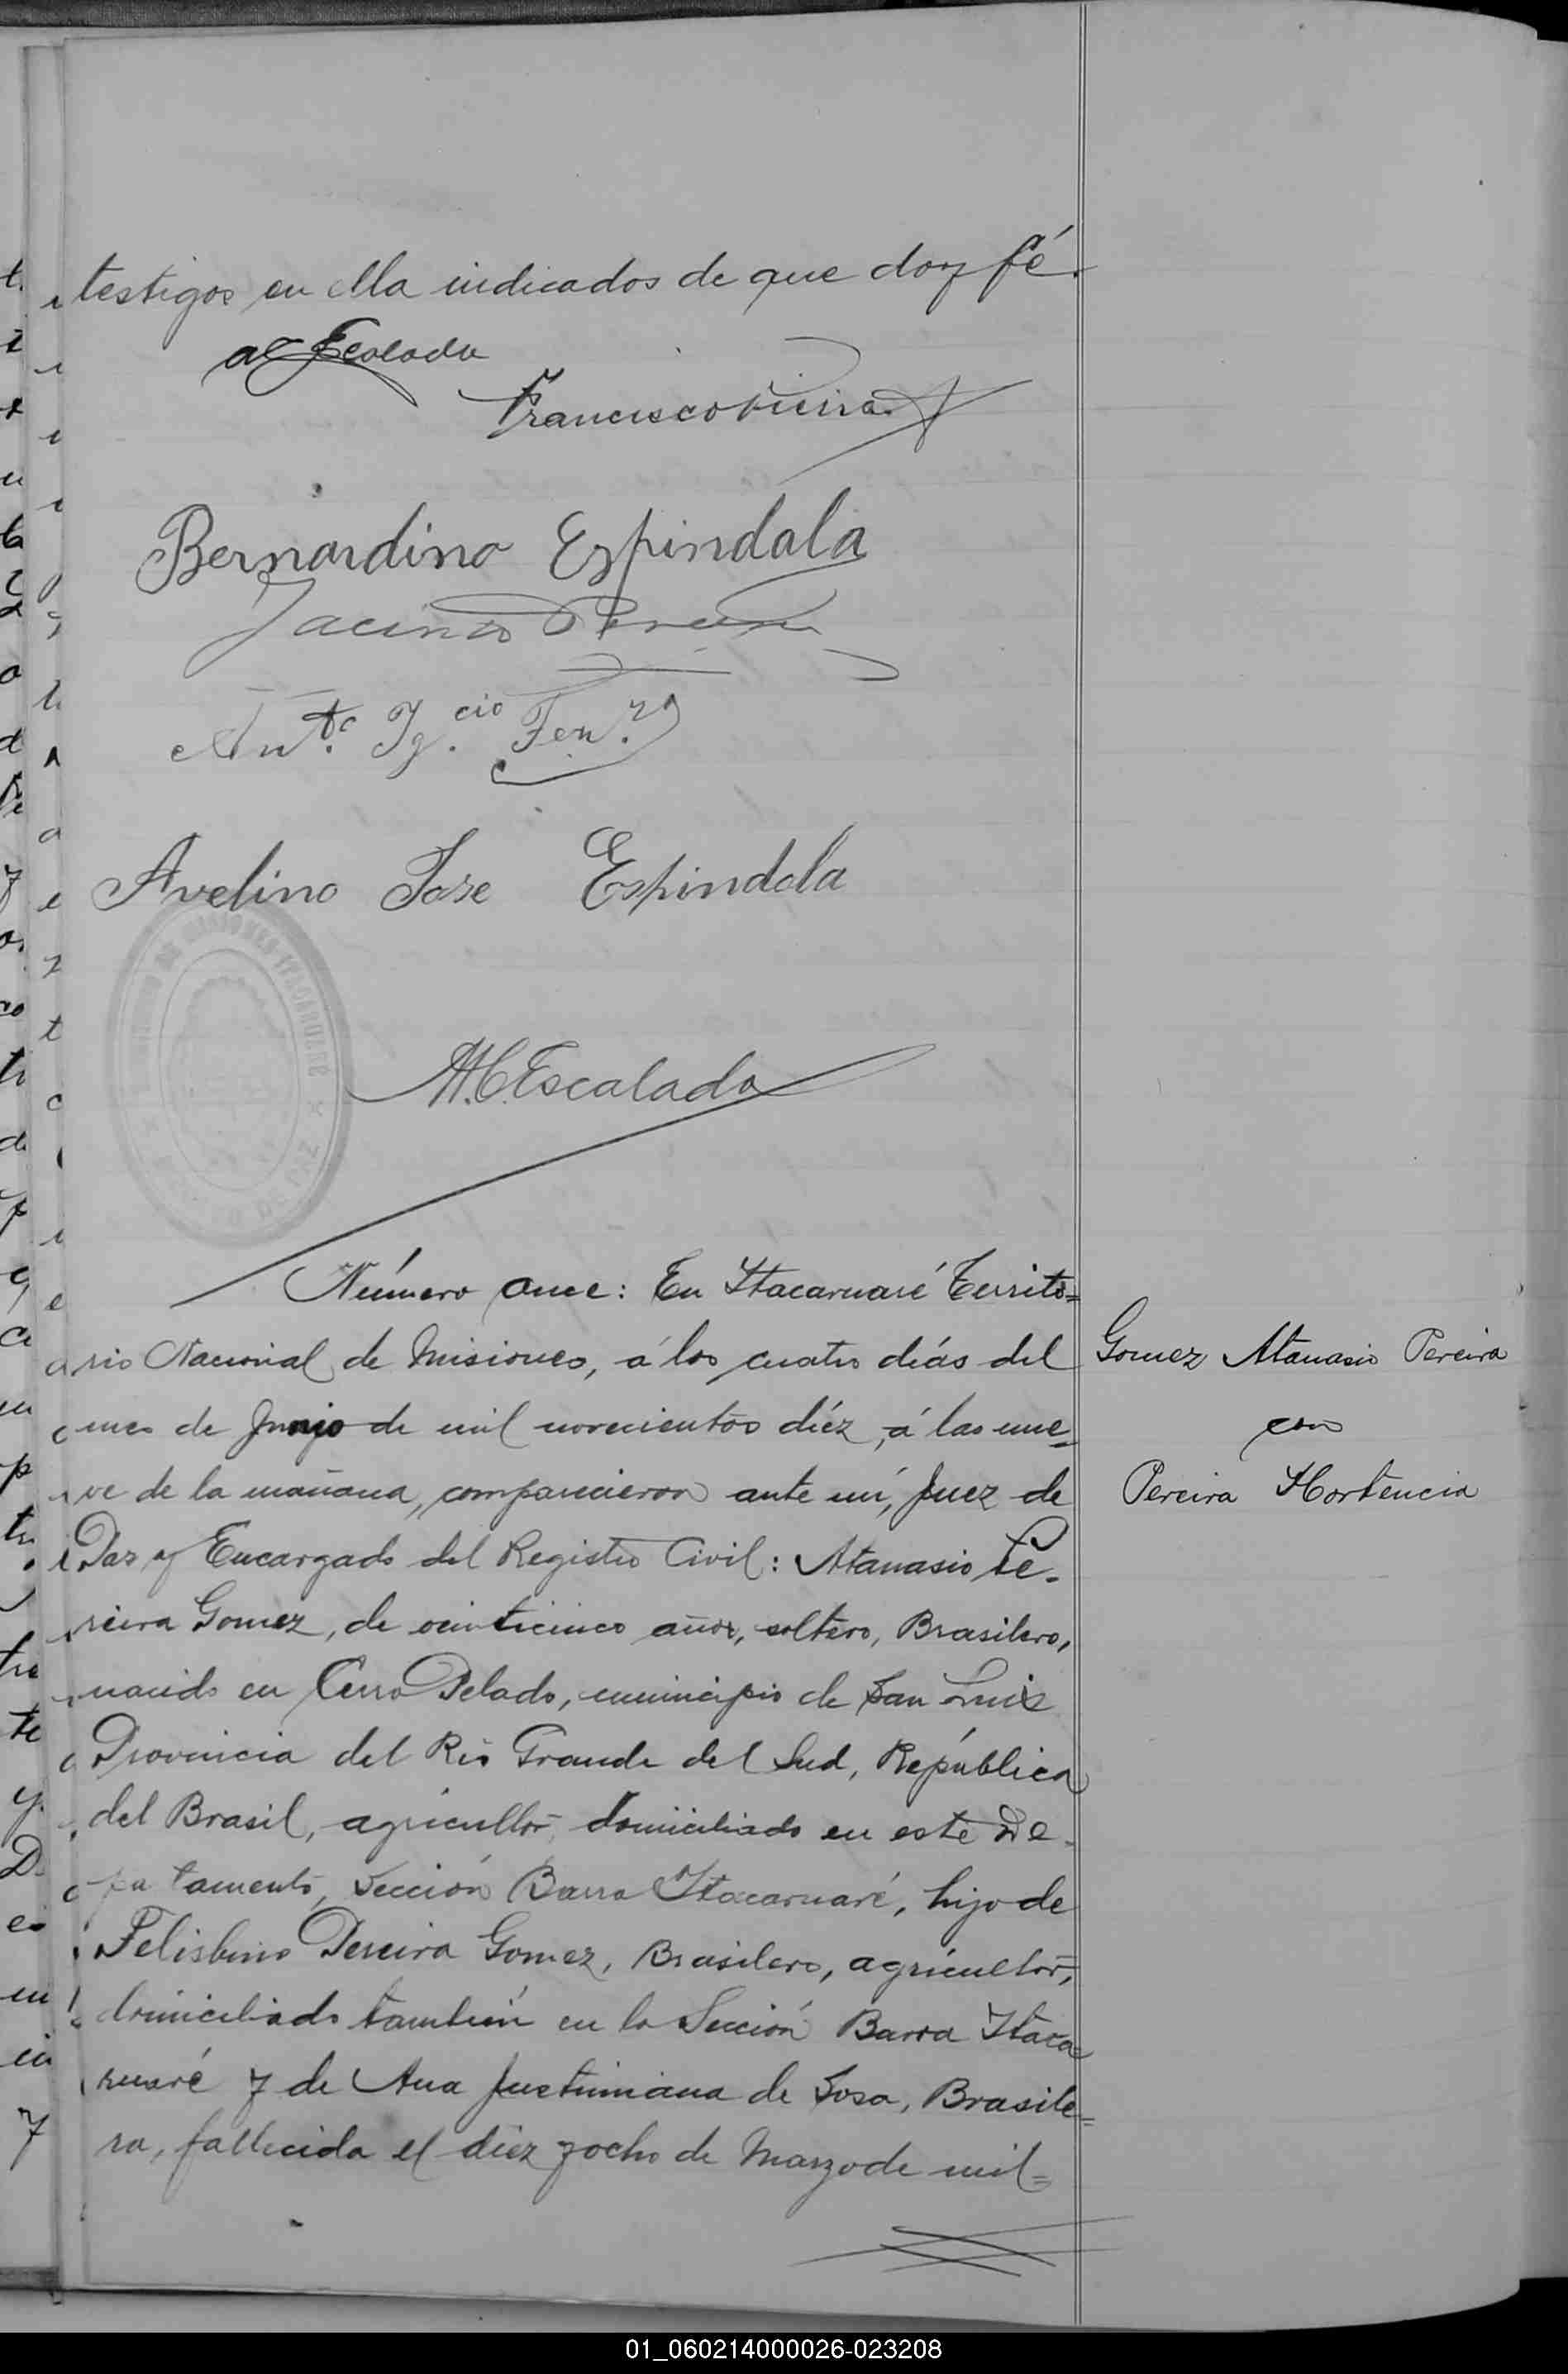 testigos en ella indicados de que doy fé.
Francisco Vieira
Bernardino Espindola
Jacinto Pereira
Ant.º Ig.cio Ferr.ª
Avelino Jose Espindola
M.C. Escalada
Número once: En Itacaruaré Territo=
rio Nacional de Misiones, á los cuatro diás del
mes de Junio de mil novecientos diéz, á las nue=
ve de la mañana, comparecieron ante mi, Juez de
Paz y Encargado del Registro Civil: Atanasio Pe-
reira Gomez, de veinticinco años, soltero, Brasilero,
nacido en Cerro Pelado, municipio de San Luis
Provincia del Rio Grande del Sud, República
del Brasil, agricultor, domiciliado en este De-
partamento, Sección Barra Itacaruaré, hijo de
Felisbino Pereira Gomez, Brasilero, agricultor,
domiciliado también en la Sección Barra Itaca
ruaré y de Ana Justiniana de Sosa, Brasile=
ra, fallecida el diez y ocho de Marzo de mil=
Gomez Atanasio Pereira
con
Pereira Hortencia
01_060214000026-023208